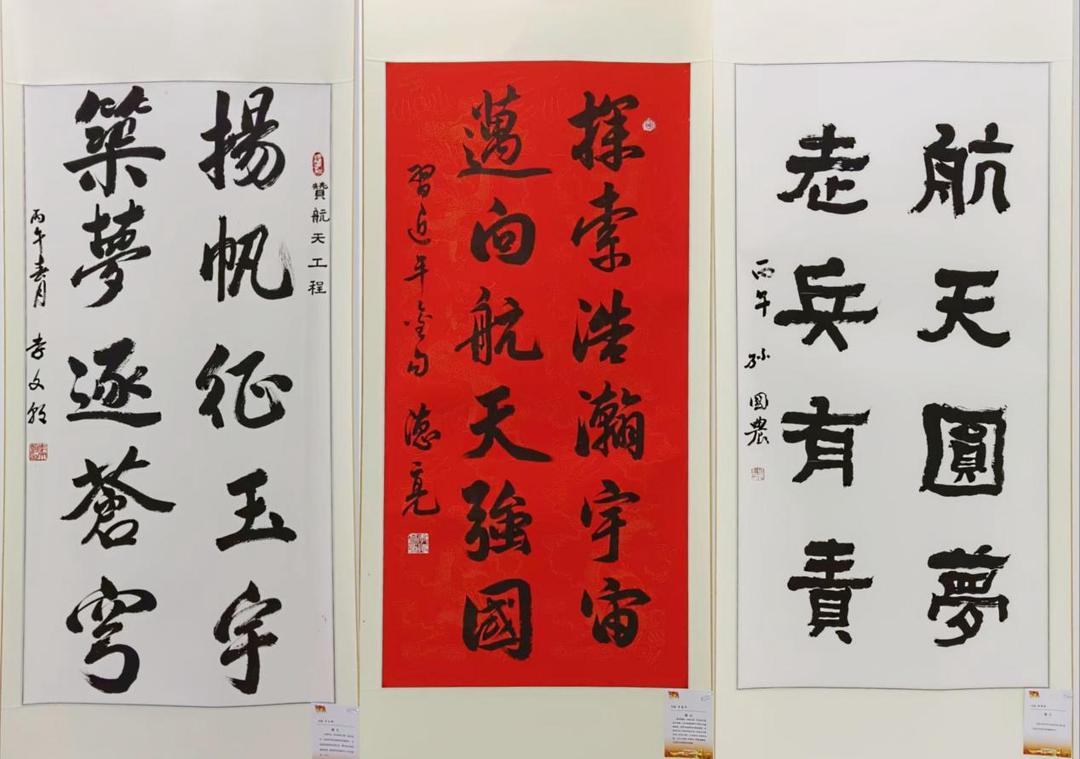 贊航天工程
揚帆征玉宇
築夢逐蒼穹
丙午春月 李文朝
探索浩瀚宇宙
邁向航天強國
習近平金句 德亮
航天圓夢
老兵有責
丙午 孫國農